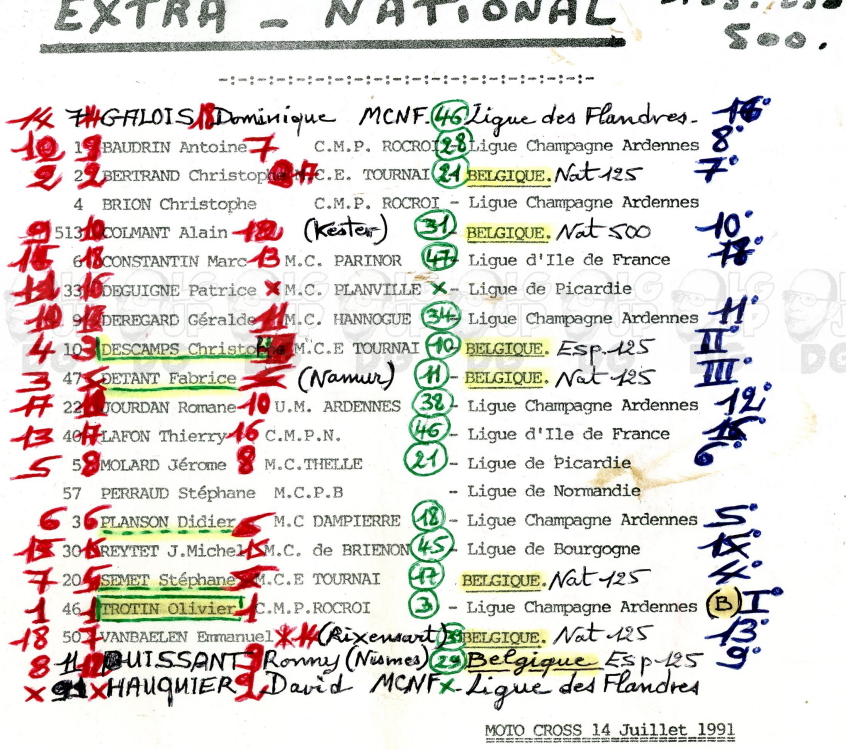 EXTRA - NATIONAL
500.
-:-:-:-:-:-:-:-:-:-:-:-:-:-:-:-:-:-:-:-
14 7 14 GALOIS 18 Dominique MCNF 46 Ligue des Flandres - 16°
1 9 BAUDRIN Antoine 7 C.M.P. ROCROI 28 Ligue Champagne Ardennes 8°
2 2 2 BERTRAND Christophe 17 M.C.E. TOURNAI 21 BELGIQUE. Nat 125 7°
4 BRION Christophe C.M.P. ROCROI - Ligue Champagne Ardennes
9 513 10 COLMANT Alain 12 (Kester) 31 BELGIQUE. Nat 500 10°
16 6 18 CONSTANTIN Marc 13 M.C. PARINOR 47 - Ligue d'Ile de France 18°
33 16 DEGUIGNE Patrice x M.C. PLANVILLE x - Ligue de Picardie
9 12 DEREGARD Géralde 11 M.C. HANNOGUE 34 - Ligue Champagne Ardennes 11°
4 10 3 DESCAMPS Christophe M.C.E TOURNAI 10 BELGIQUE. Esp. 125 II°
3 47 DETANT Fabrice 5 (Namur) 11 - BELGIQUE. Nat 125 III°
17 22 JOURDAN Romane 10 U.M. ARDENNES 38 - Ligue Champagne Ardennes 12°
13 40 17 LAFON Thierry 16 C.M.P.N. 46 - Ligue d'Ile de France 15°
5 5 8 MOLARD Jérome 8 M.C.THELLE 21 - Ligue de Picardie 6°
57 PERRAUD Stéphane M.C.P.B - Ligue de Normandie
6 3 6 PLANSON Didier 6 M.C DAMPIERRE 18 - Ligue Champagne Ardennes 5°
15 30 REYTET J.Michel 15 M.C. de BRIENON 45 - Ligue de Bourgogne
7 20 5 SEMET Stéphane M.C.E TOURNAI 17 BELGIQUE. Nat 125 4°
1 46 1 TROTIN Olivier 1 C.M.P.ROCROI 3 - Ligue Champagne Ardennes (B) I°
18 50 7 VANBAELEN Emmanuel 14 (Rixensart) 39 BELGIQUE. Nat 125 13°
8 11 12 PUISSANT 9 Ronny (Nismes) 29 Belgique Esp 125 9°
x x HAUQUIER David MCNF x - Ligue des Flandres
MOTO CROSS 14 Juillet 1991